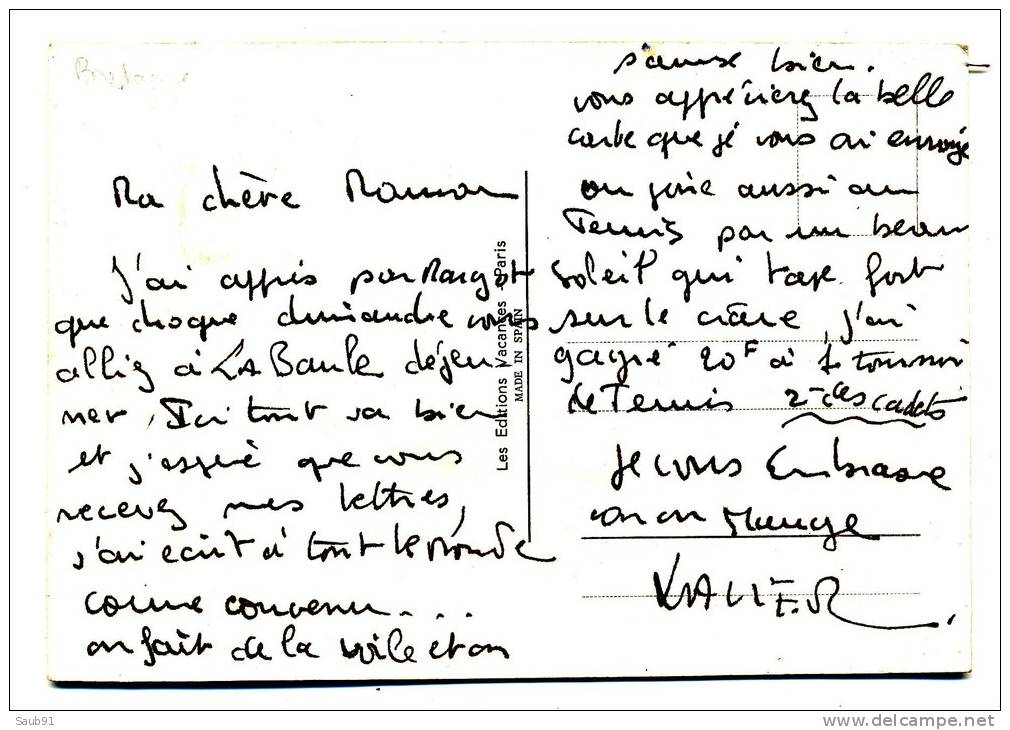 Bretagne
Ma chère Maman
J'ai appris par Margot
que chaque dimanche vous
alliez à LA Baule déjeu
ner, Ici tout va bien
et j'espère que vous
recevez mes lettres,
j'ai écrit à tout le monde
comme convenu....
on fait de la voile et on
s'amuse bien.
vous apprécierez la belle
carte que je vous ai envoyé
on joue aussi au
Tennis par un beau
soleil qui tape fort
sur le crâne, j'ai
gagné 20F à 1 tournoi
de Tennis 2 des cadets
Je vous Embrasse
car on Mange
XAVIER.
Les Editions Vacances - Paris
MADE IN SPAIN
Saub91
delcampe.net